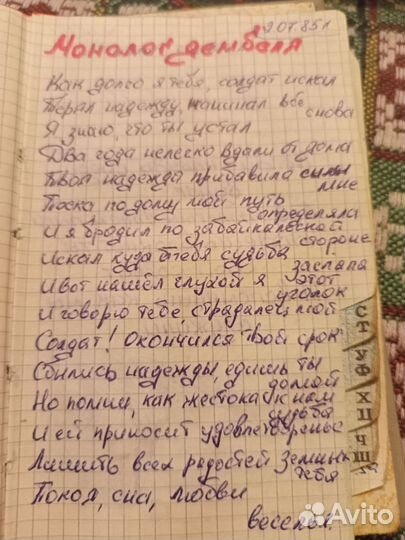 9.07.85г
Монолог дембеля
Как долго я тебя, солдат искал
Терял надежду, начинал всё снова
Я знаю, что ты устал
Два года нелегко вдали от дома
Твоя надежда прибавила силы мне
Тоска по дому мой путь определяла
И я бродил по забайкальской стороне
Искал куда тебя судьба заслала
И вот нашёл глухой я этот уголок
И говорю тебе, страдалец мой
Солдат! Окончился твой срок
Сбылись надежды, едишь ты домой
Но помни, как жестока к нам судьба
И ей приносит удовлетворенье
Лишить всех радостей земных тебя
Покоя, сна, любви
веселья.
СТ
УФ
ХЦ
ЧШ
Avito